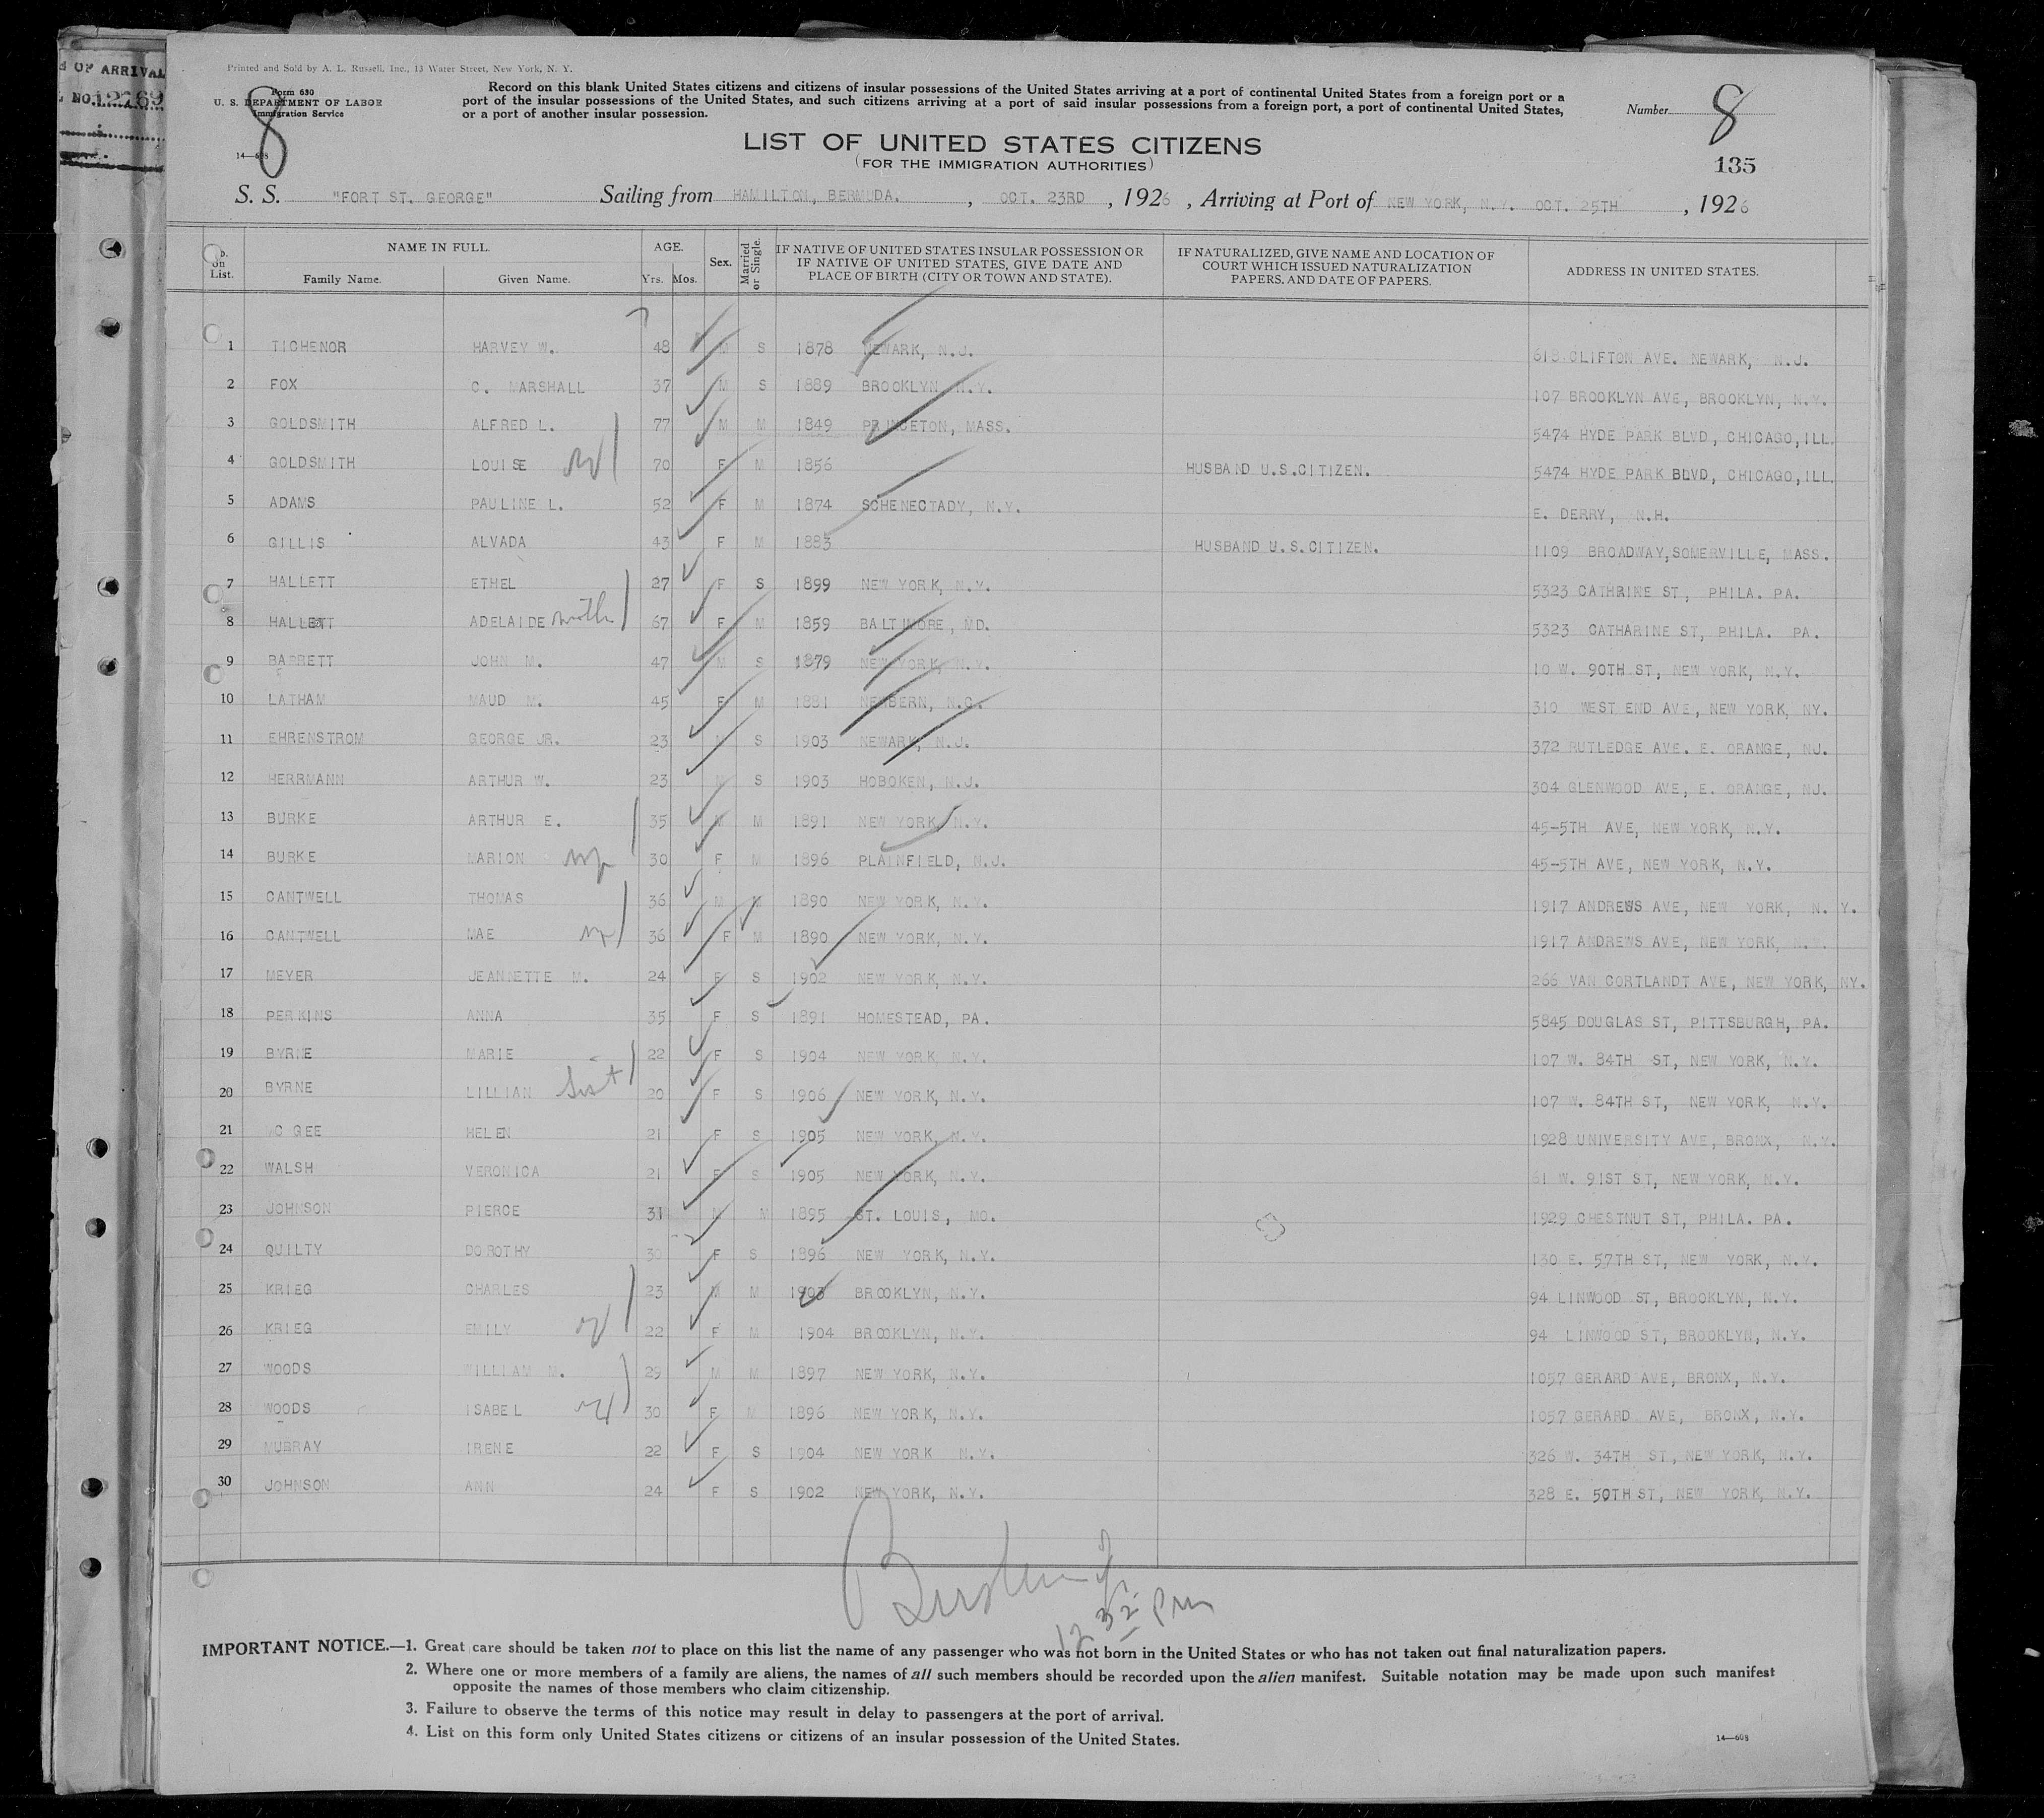 E OF ARRIVAL
NO. 12769
Printed and Sold by A. L. Russell, Inc., 13 Water Street, New York, N. Y.
Form 630
U. S. DEPARTMENT OF LABOR
Immigration Service
8
14—608
Record on this blank United States citizens and citizens of insular possessions of the United States arriving at a port of continental United States from a foreign port or a
port of the insular possessions of the United States, and such citizens arriving at a port of said insular possessions from a foreign port, a port of continental United States,
or a port of another insular possession.
Number 8
LIST OF UNITED STATES CITIZENS
(FOR THE IMMIGRATION AUTHORITIES)
135
S. S. "FORT ST. GEORGE" Sailing from HAMILTON, BERMUDA. , OCT. 23RD , 1926 , Arriving at Port of NEW YORK, N.Y. OCT. 25TH , 1926
No. on List. NAME IN FULL. Family Name. Given Name. AGE. Yrs. Mos. Sex. Married or Single. IF NATIVE OF UNITED STATES INSULAR POSSESSION OR IF NATIVE OF UNITED STATES, GIVE DATE AND PLACE OF BIRTH (CITY OR TOWN AND STATE). IF NATURALIZED, GIVE NAME AND LOCATION OF COURT WHICH ISSUED NATURALIZATION PAPERS, AND DATE OF PAPERS. ADDRESS IN UNITED STATES.
1 TICHENOR HARVEY W. 48 M S 1878 NEWARK, N.J. 618 CLIFTON AVE. NEWARK, N.J.
2 FOX C. MARSHALL 37 M S 1889 BROOKLYN N.Y. 107 BROOKLYN AVE, BROOKLYN, N.Y.
3 GOLDSMITH ALFRED L. 77 M M 1849 PRINCETON, MASS. 5474 HYDE PARK BLVD, CHICAGO, ILL.
4 GOLDSMITH LOUISE 70 F M 1856 HUSBAND U.S.CITIZEN. 5474 HYDE PARK BLVD, CHICAGO, ILL.
5 ADAMS PAULINE L. 52 F M 1874 SCHENECTADY, N.Y. E. DERRY, N.H.
6 GILLIS ALVADA 43 F M 1883 HUSBAND U.S.CITIZEN. 1109 BROADWAY, SOMERVILLE, MASS.
7 HALLETT ETHEL 27 F S 1899 NEW YORK, N.Y. 5323 CATHRINE ST, PHILA. PA.
8 HALLETT ADELAIDE moth 67 F M 1859 BALTIMORE, MD. 5323 CATHARINE ST, PHILA. PA.
9 BARRETT JOHN M. 47 M S 1879 NEW YORK, N.Y. 10 W. 90TH ST, NEW YORK, N.Y.
10 LATHAM MAUD M. 45 F M 1881 NEWBERN, N.C. 310 WEST END AVE, NEW YORK, NY.
11 EHRENSTROM GEORGE JR. 23 M S 1903 NEWARK, N.J. 372 RUTLEDGE AVE. E. ORANGE, NJ.
12 HERRMANN ARTHUR W. 23 M S 1903 HOBOKEN, N.J. 304 GLENWOOD AVE, E. ORANGE, NJ.
13 BURKE ARTHUR E. 35 M M 1891 NEW YORK, N.Y. 45-5TH AVE, NEW YORK, N.Y.
14 BURKE MARION 30 F M 1896 PLAINFIELD, N.J. 45-5TH AVE, NEW YORK, N.Y.
15 CANTWELL THOMAS 36 M M 1890 NEW YORK, N.Y. 1917 ANDREWS AVE, NEW YORK, N. Y.
16 CANTWELL MAE 36 F M 1890 NEW YORK, N.Y. 1917 ANDREWS AVE, NEW YORK, N.Y.
17 MEYER JEANNETTE M. 24 F S 1902 NEW YORK, N.Y. 266 VAN CORTLANDT AVE, NEW YORK, NY.
18 PERKINS ANNA 35 F S 1891 HOMESTEAD, PA. 5845 DOUGLAS ST, PITTSBURGH, PA.
19 BYRNE MARIE 22 F S 1904 NEW YORK, N.Y. 107 W. 84TH ST, NEW YORK, N.Y.
20 BYRNE LILLIAN Sist 20 F S 1906 NEW YORK, N.Y. 107 W. 84TH ST, NEW YORK, N.Y.
21 MC GEE HELEN 21 F S 1905 NEW YORK, N.Y. 1928 UNIVERSITY AVE, BRONX, N.Y.
22 WALSH VERONICA 21 F S 1905 NEW YORK, N.Y. 61 W. 91ST ST, NEW YORK, N.Y.
23 JOHNSON PIERCE 31 M M 1895 ST. LOUIS, MO. 1929 CHESTNUT ST, PHILA. PA.
24 QUILTY DOROTHY 30 F S 1896 NEW YORK, N.Y. 130 E. 57TH ST, NEW YORK, N.Y.
25 KRIEG CHARLES 23 M M 1903 BROOKLYN, N.Y. 94 LINWOOD ST, BROOKLYN, N.Y.
26 KRIEG EMILY 22 F M 1904 BROOKLYN, N.Y. 94 LINWOOD ST, BROOKLYN, N.Y.
27 WOODS WILLIAM M. 29 M M 1897 NEW YORK, N.Y. 1057 GERARD AVE, BRONX, N.Y.
28 WOODS ISABEL 30 F M 1896 NEW YORK, N.Y. 1057 GERARD AVE, BRONX, N.Y.
29 MURRAY IRENE 22 F S 1904 NEW YORK N.Y. 326 W. 34TH ST, NEW YORK, N.Y.
30 JOHNSON ANN 24 F S 1902 NEW YORK, N.Y. 328 E. 50TH ST, NEW YORK, N.Y.
12 32 pm
IMPORTANT NOTICE.—1. Great care should be taken not to place on this list the name of any passenger who was not born in the United States or who has not taken out final naturalization papers.
2. Where one or more members of a family are aliens, the names of all such members should be recorded upon the alien manifest. Suitable notation may be made upon such manifest
opposite the names of those members who claim citizenship.
3. Failure to observe the terms of this notice may result in delay to passengers at the port of arrival.
4. List on this form only United States citizens or citizens of an insular possession of the United States.
14—608